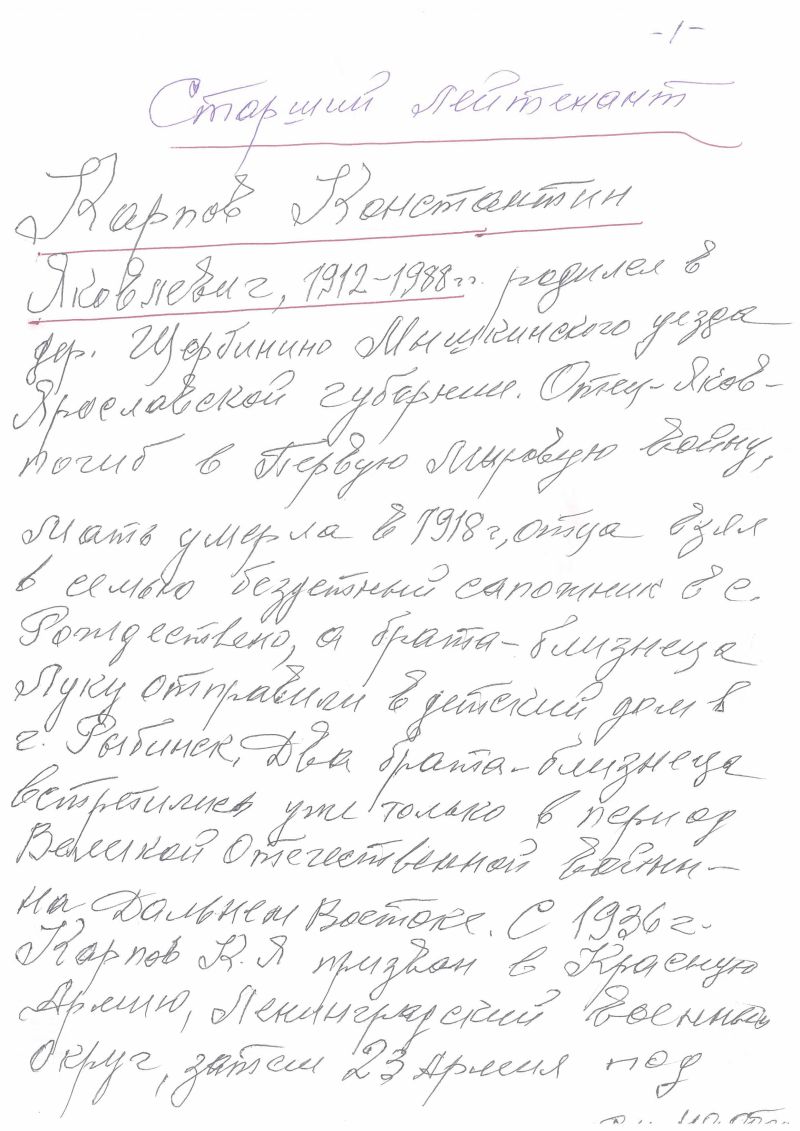 -1-
Старший лейтенант
Карпов Константин
Яковлевич, 1912-1988гг. родился в
дер. Щербинино Мышкинского уезда
Ярославской губернии. Отец-Яков-
погиб в Первую Мировую войну,
Мать умерла в 1918г, отца взял
в семью бездетный сапожник в с.
Рождествено, а брата-близнеца
Луку отправили в детский дом в
г. Рыбинск. Два брата-близнеца
встретились уже только в период
Великой Отечественной войны-
на Дальнем Востоке. С 1936г.
Карпов К.Я призван в Красную
Армию, Ленинградский военный
округ, затем 23 Армия под